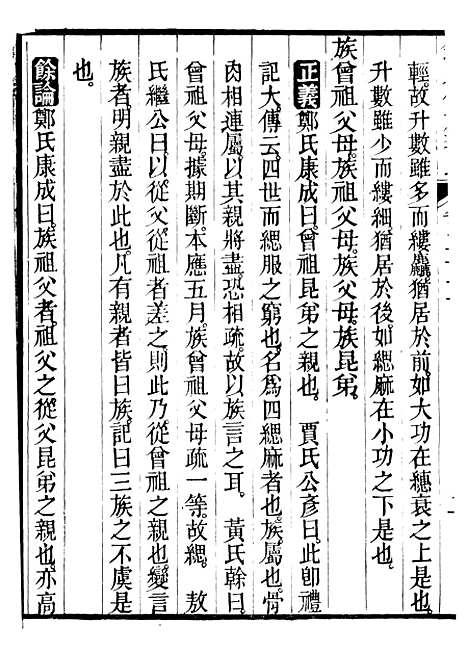 輕故升數雖多而縷麤猶居於前如大功在繐衰之上是也
升數雖少而縷細猶居於後如緦麻在小功之下是也
族曾祖父母族祖父母族父母族昆弟
正義鄭氏康成曰曾祖昆弟之親也 賈氏公彥曰此卽禮
記大傳云四世而緦服之窮也名爲四緦麻者也族屬也骨
肉相連屬以其親將盡恐相疏故以族言之耳 黃氏榦曰
曾祖父母據期斷本應五月族曾祖父母疏一等故緦 敖
氏繼公曰以從父從祖者差之則此乃從曾祖之親也變言
族者明親盡於此也凡有親者皆曰族記曰三族之不虞是
也
餘論鄭氏康成曰族祖父者祖父之從父昆弟之親也亦高